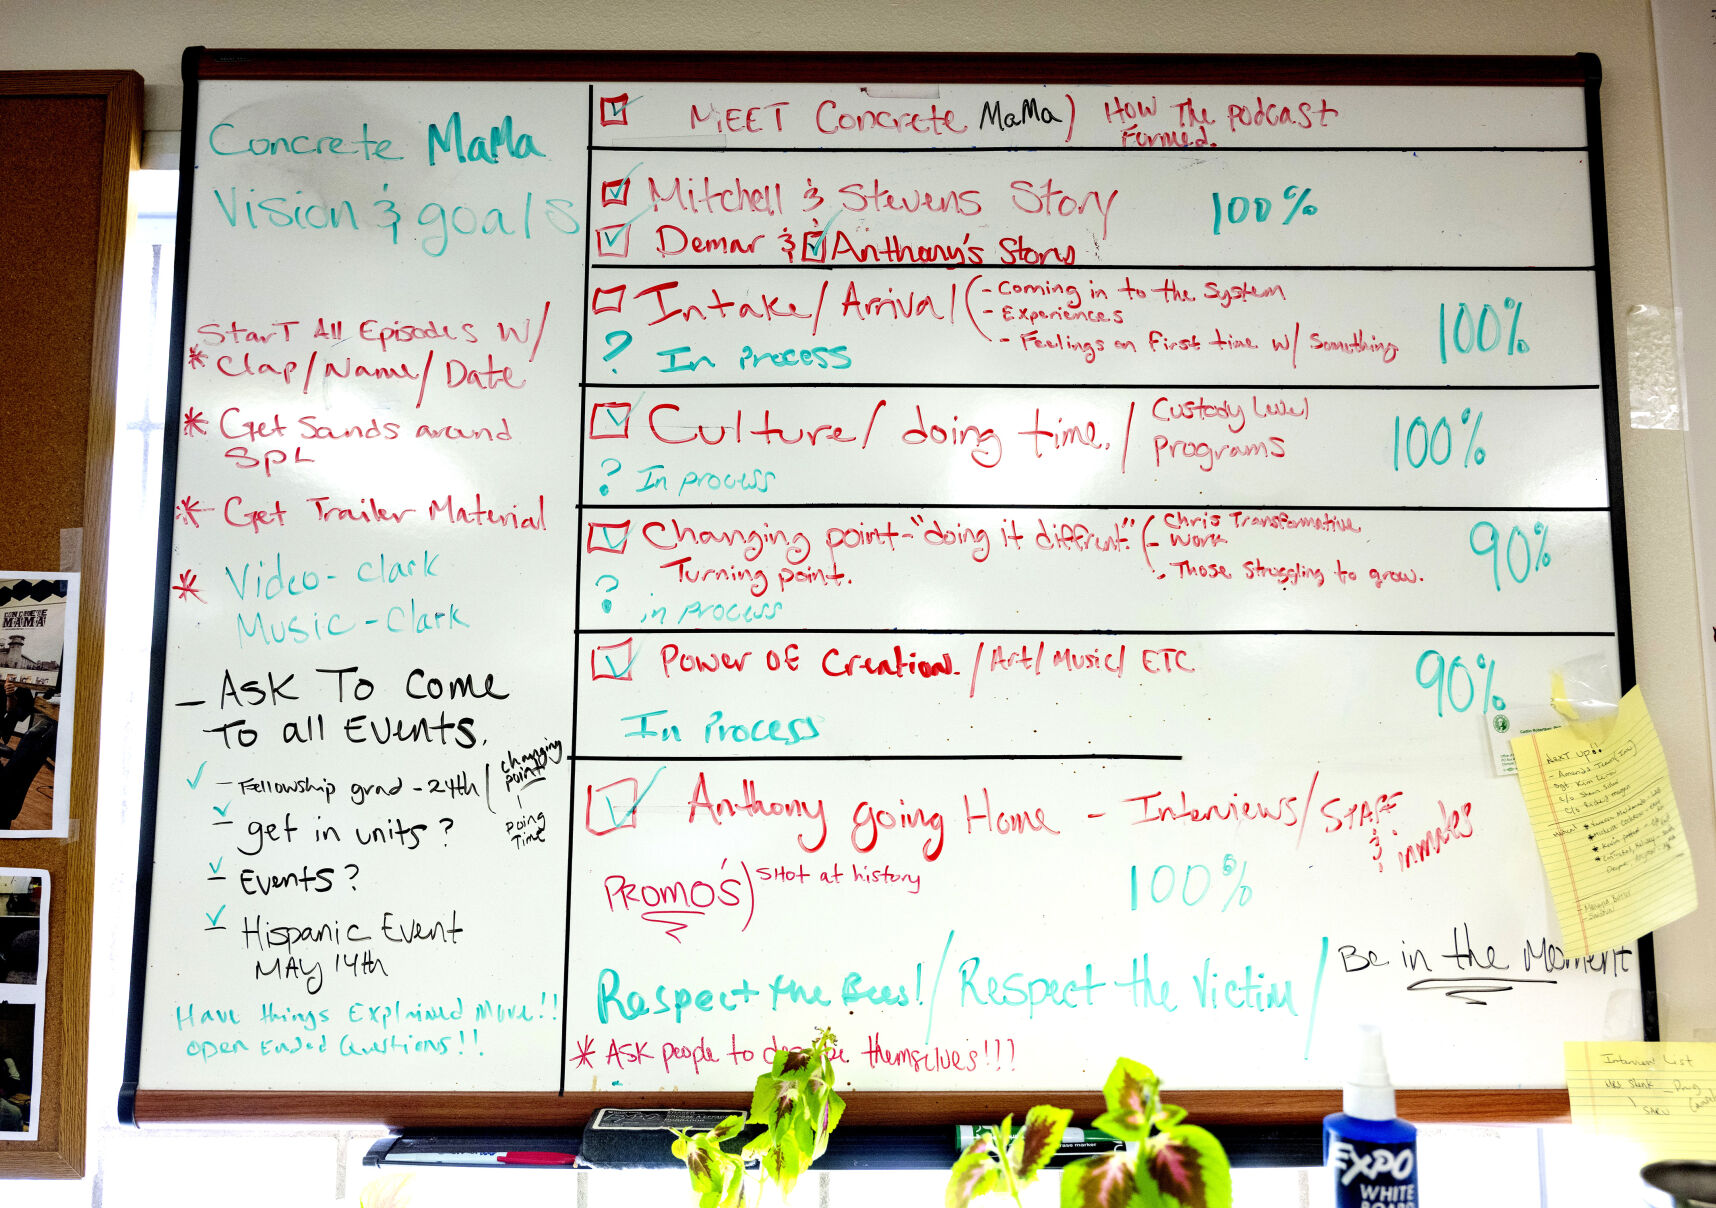 Concrete MaMa
Vision & goals
Start All Episodes w/
* Clap/Name/Date
* Get Sands around
SPL
* Get Trailer Material
* Video - Clark
Music - Clark
- ASK To Come
To all EVENTS.
✓ - Fellowship grad - 24th (changing
point
doing
Time
✓ - get in units?
✓ - EVENTS?
✓ - Hispanic Event
MAY 14th
Have things Explained More!!
open Ended Questions!!
☑ MEET Concrete MaMa) How The podcast
Formed.
☑ Mitchell & Stevens Story 100%
☑ Demar & ☑ Anthony's Story
☐ Intake/Arrival (- Coming in to the System
- Experiences
- Feelings on first time w/ Something
100%
? In Process
☑ Culture/doing time./ Custody Level
Programs
100%
? In process
☑ Changing point - "doing it diffrent." (- Chris Transformative
Work
Turning point. - Those Struggling to grow.
90%
? in process
☑ Power of Creation./Art/Music/ETC
90%
In Process
☑ Anthony going Home - Interviews/STAFF
& inmates
PROMO'S) SHot at history
100%
Respect the Bees!/Respect the Victim/ Be in the Moment
* ASK people to themselves!!!
Next up!!
Interview List
EXPO
WHITE
CONCRETE
MAMA